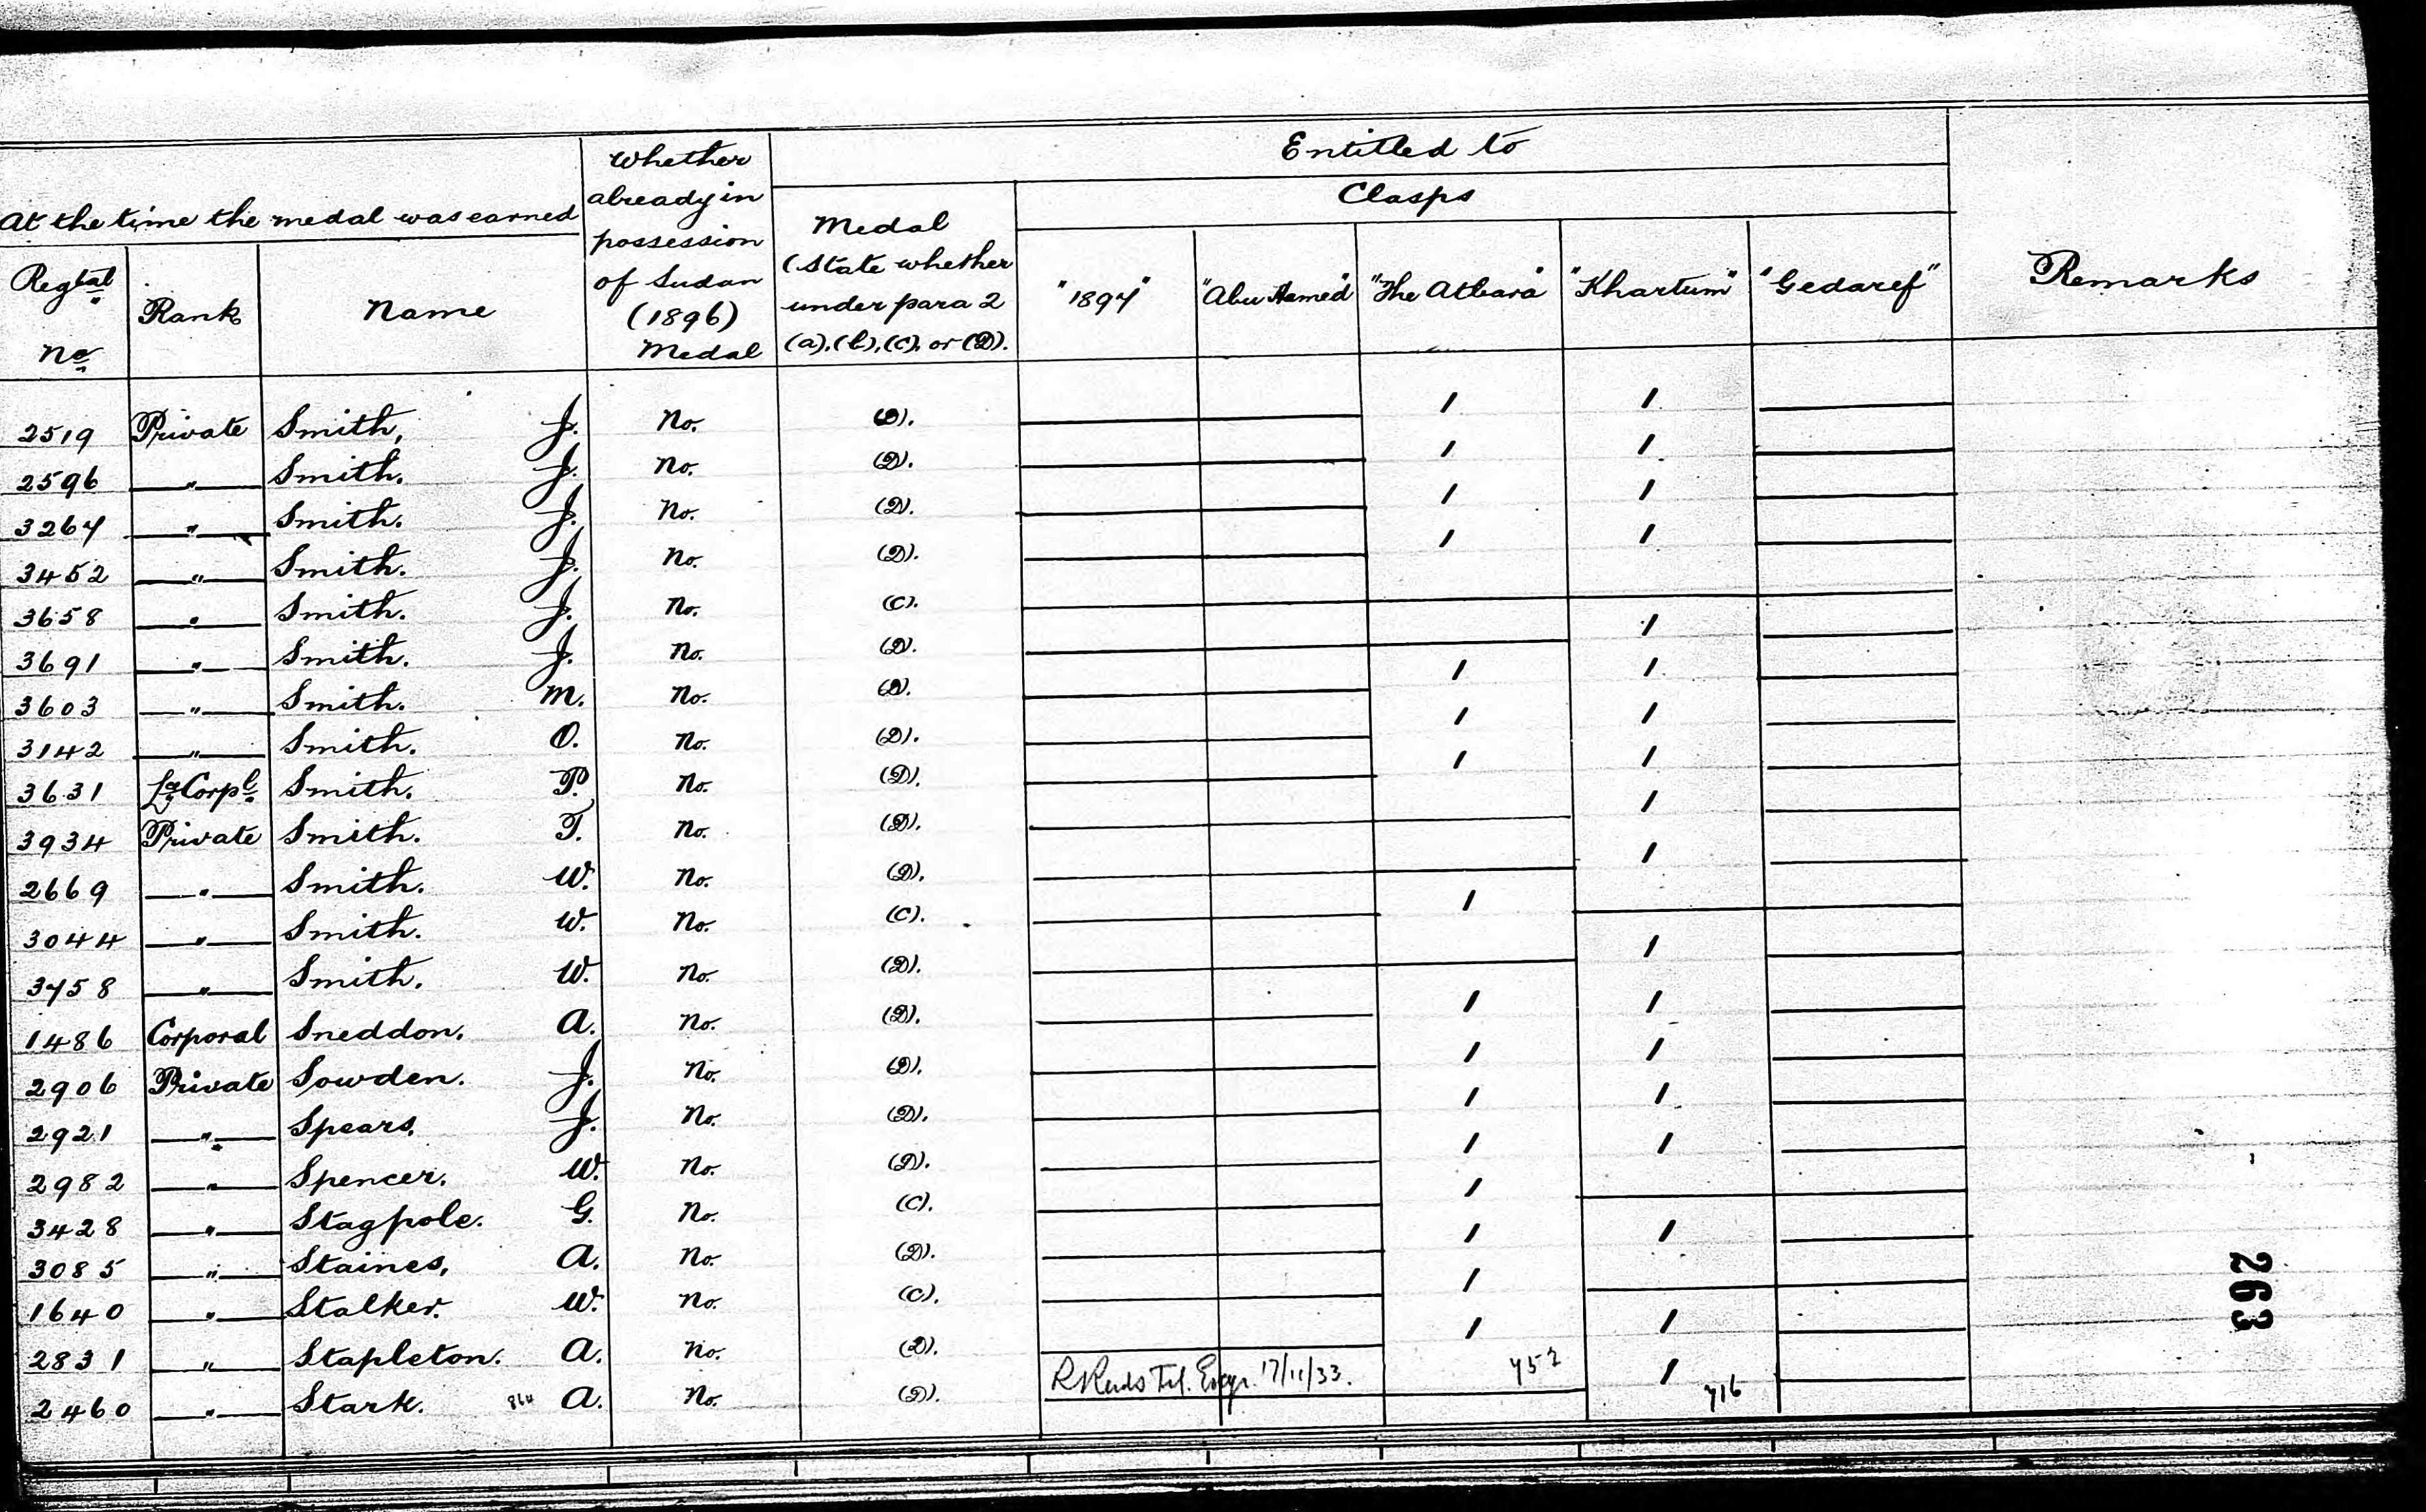 Entitled to
Clasps
At the time the medal was earned
Whether already in possession of Sudan (1896) Medal
Medal (State whether under para 2 (a), (b), (c), or (D).
Regtal No.
Rank
Name
"1897"
"Abu Hamed"
"The Atbara"
"Khartum"
"Gedaref"
Remarks
2519 Private Smith, J. No. (D). / /
2596 " Smith. J. No. (D). / /
3267 " Smith. J. No. (D). / /
3452 " Smith. J. No. (D). / /
3658 " Smith. J. No. (C).
3691 " Smith. J. No. (D). /
3603 " Smith. M. No. (D). / /
3142 " Smith. O. No. (D). / /
3631 Le Corpl. Smith. P. No. (D). / /
3934 Private Smith. T. No. (D). /
2669 " Smith. W. No. (D). /
3044 " Smith. W. No. (C). /
3758 " Smith. W. No. (D). /
1486 Corporal Sneddon. A. No. (D). / /
2906 Private Sowden. J. No. (D). / /
2921 " Spears. J. No. (D). / /
2982 " Spencer. W. No. (D). / /
3428 " Stagpole. G. No. (C). /
3085 " Staines, A. No. (D). / /
1640 " Stalker. W. No. (C). /
2831 " Stapleton. A. No. (D). / /
2460 " Stark. A. No. (D). 17/11/33. 752 / 716
263